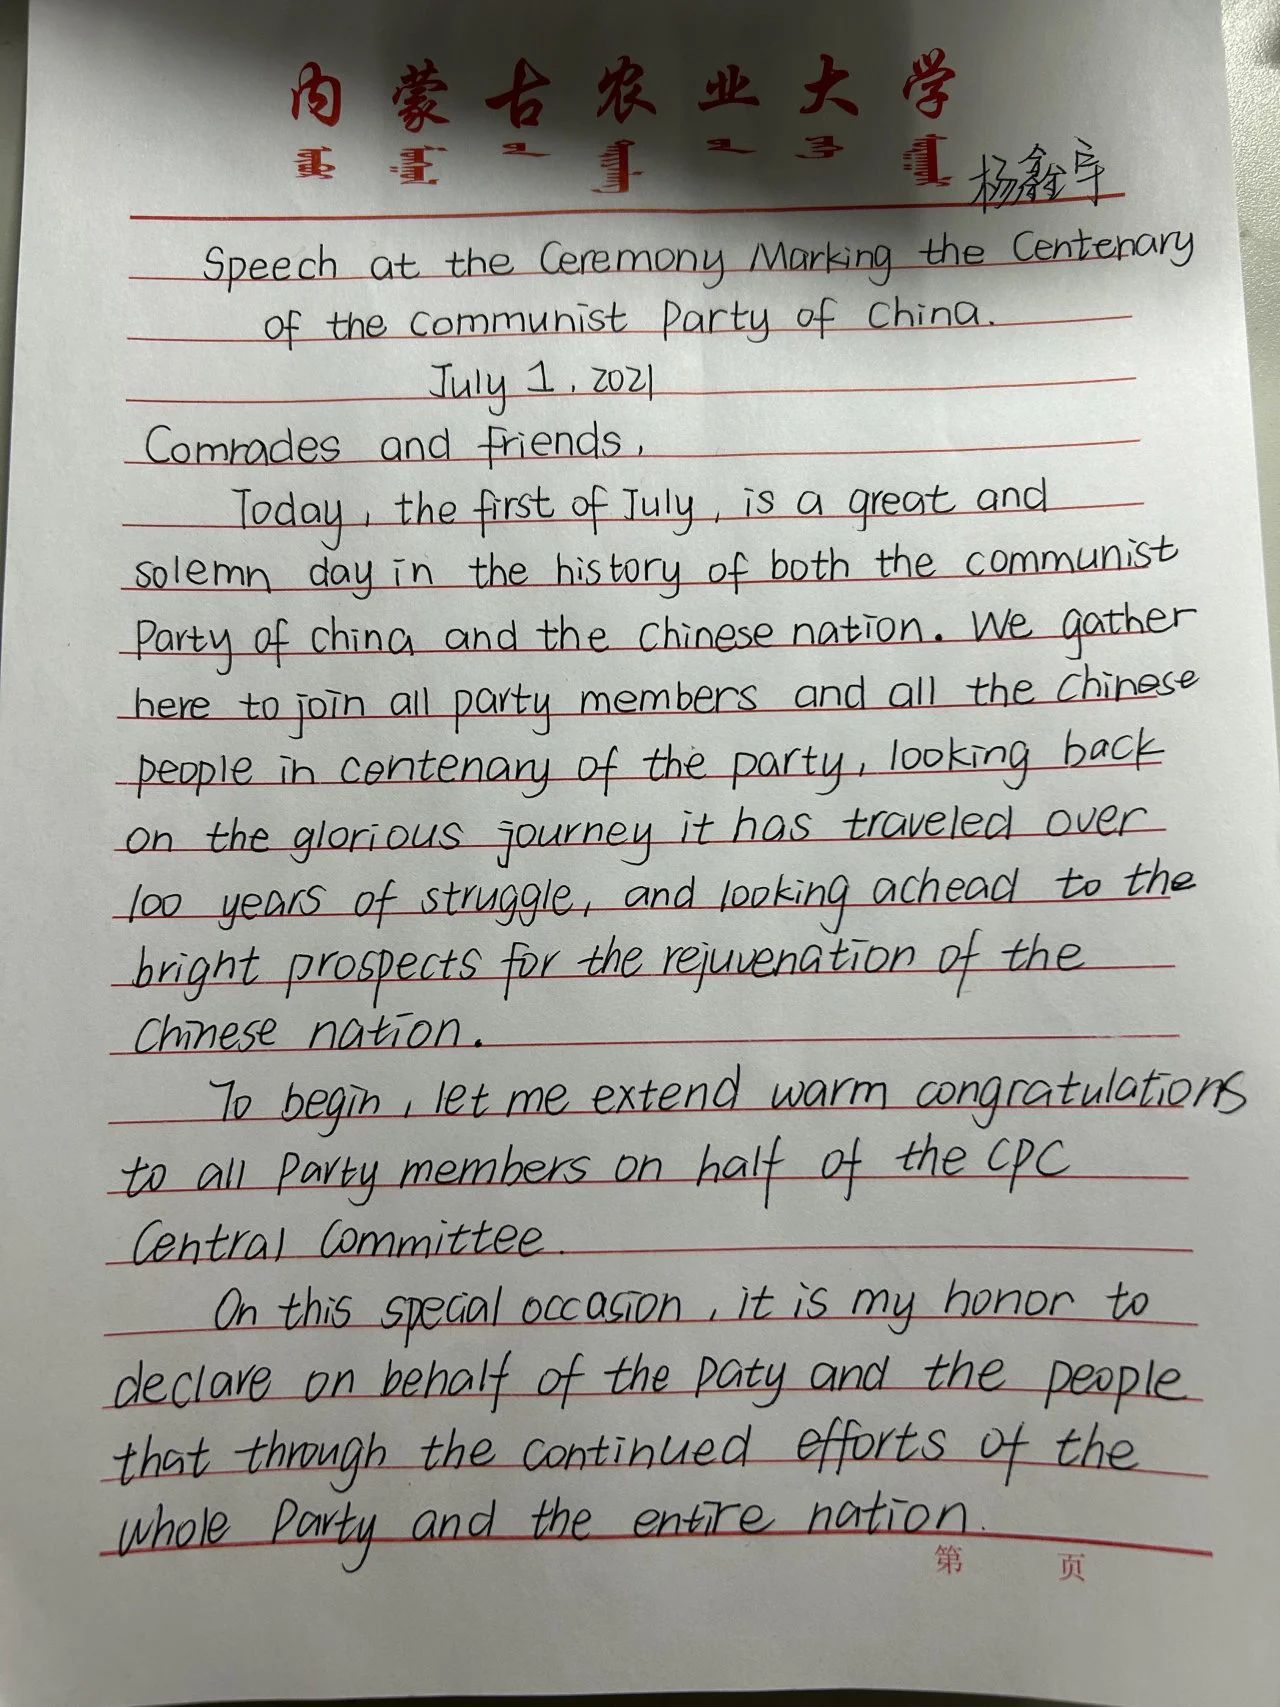 内蒙古农业大学
杨鑫宇
Speech at the Ceremony Marking the Centenary
of the communist Party of China.
July 1, 2021
Comrades and friends,
Today, the first of July, is a great and
solemn day in the history of both the communist
Party of China and the Chinese nation. We gather
here to join all party members and all the Chinese
people in centenary of the party, looking back
on the glorious journey it has traveled over
100 years of struggle, and looking achead to the
bright prospects for the rejuvenation of the
Chinese nation.
To begin, let me extend warm congratulations
to all Party members on half of the CPC
Central Committee.
On this special occasion, it is my honor to
declare on behalf of the Paty and the people
that through the continued efforts of the
whole Party and the entire nation.
第 页